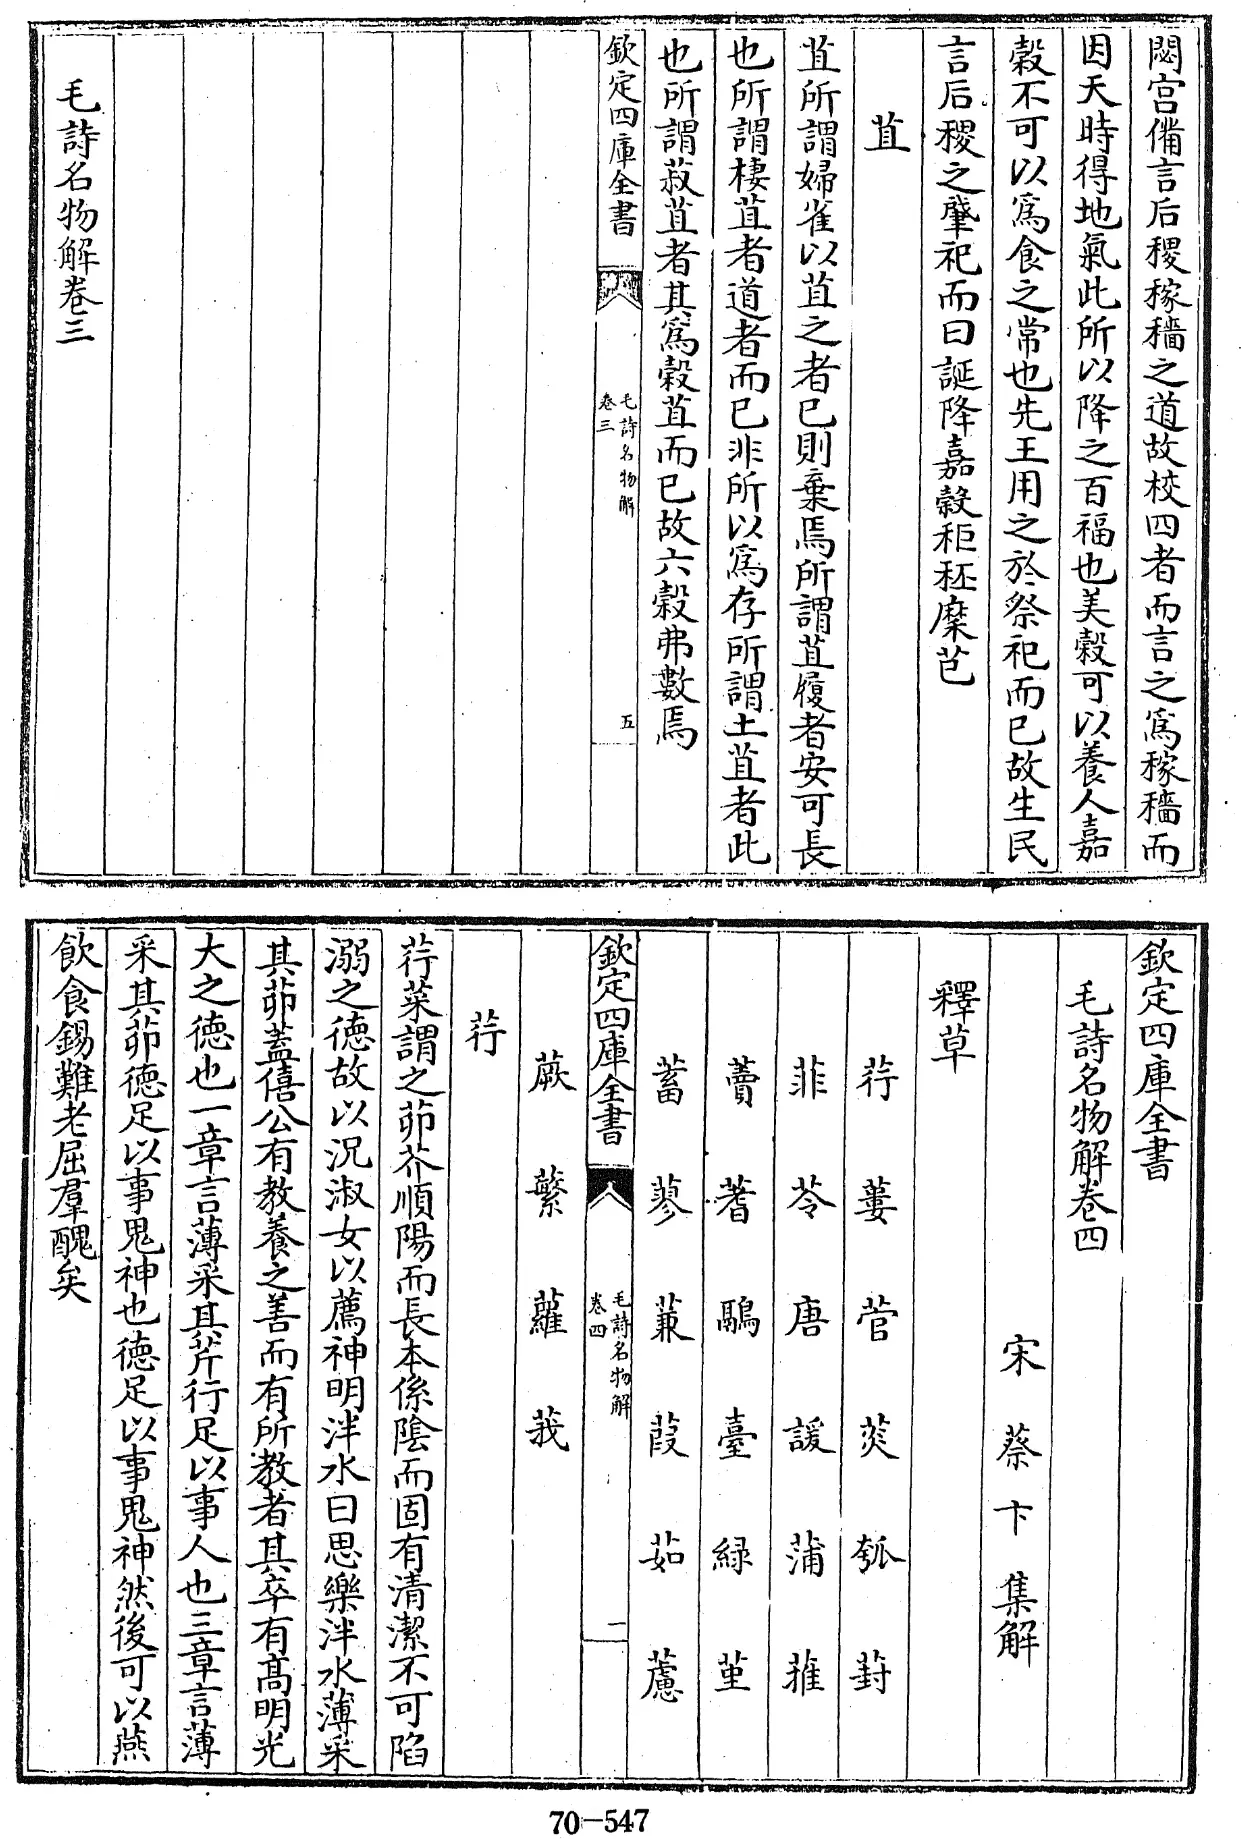 閟宫備言后稷稼穡之道故校四者而言之為稼穡而
因天時得地氣此所以降之百福也美穀可以養人嘉
穀不可以為食之常也先王用之於祭祀而已故生民
言后稷之肇祀而曰誕降嘉穀秬秠穈芑
苴
苴所謂婦雀以苴之者已則棄焉所謂苴履者安可長
也所謂棲苴者道者而已非所以為存所謂土苴者此
也所謂菽苴者其為穀苴而已故六穀弗數焉
欽定四庫全書
毛詩名物解
卷三
五
毛詩名物解卷三
欽定四庫全書
毛詩名物解卷四
宋 蔡卞 集解
釋草
荇 蔞 菅 菼 瓠 葑
菲 苓 唐 諼 蒲 蓷
薲 蓍 鷊 臺 緑 堇
蓄 蓼 蒹 葭 茹 藘
欽定四庫全書
毛詩名物解
卷四
一
蕨 蘩 蘿 莪
荇
荇菜謂之茆芥順陽而長本係陰而固有清潔不可陷
溺之徳故以況淑女以薦神明泮水曰思樂泮水薄采
其茆蓋僖公有教養之善而有所教者其卒有髙明光
大之徳也一章言薄采其芹行足以事人也三章言薄
采其茆徳足以事鬼神也徳足以事鬼神然後可以燕
飲食錫難老屈羣醜矣
70-547